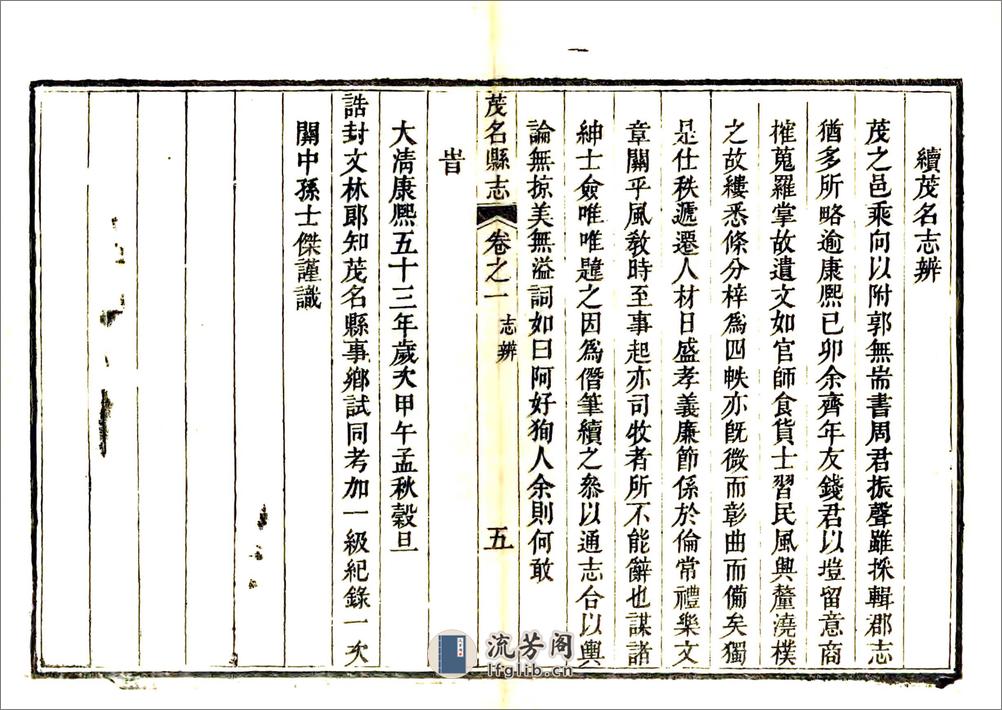 續茂名志辨
茂之邑乘向以附郭無耑書周君振聲雖採輯郡志
猶多所略逾康熙己卯余齊年友錢君以塏留意商
搉蒐羅掌故遺文如官師食貨士習民風興釐澆樸
之故縷悉條分梓為四帙亦旣微而彰曲而備矣獨
是仕秩遞遷人材日盛孝義廉節係於倫常禮樂文
章關乎風敎時至事起亦司牧者所不能辭也謀諸
紳士僉唯唯韙之因為僭筆續之叅以通志合以輿
論無掠美無溢詞如曰阿好狥人余則何敢
旹
大淸康熙五十三年歲次甲午孟秋穀旦
誥封文林郎知茂名縣事鄉試同考加一級紀錄一次
關中孫士傑謹識
茂名縣志
卷之一
志辨
五
流芳阁
lfglib.cn